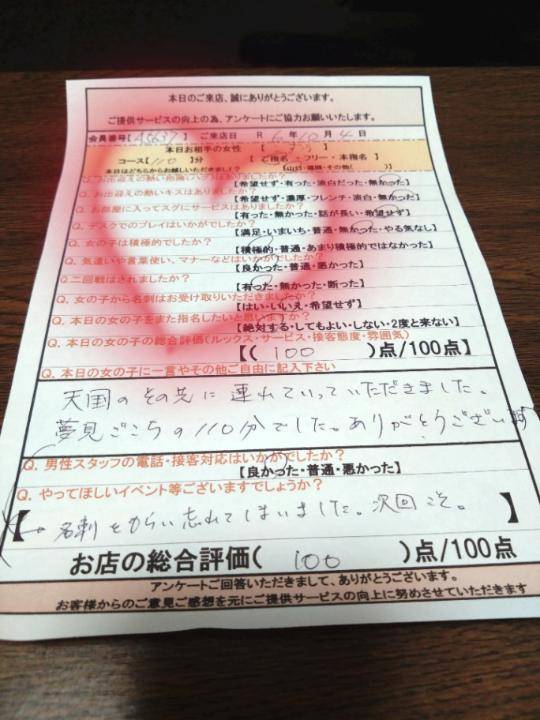 本日のご来店、誠にありがとうございます。
ご提供サービスの向上の為、アンケートにご協力お願いいたします。
会員番号【45637】 ご来店日 R 6年10月4日
本日お相手の女性【 】
コース【110】分 【ご指名・フリー・本指名】
本日はどちらからお越しいただきましたか？
【希望せず・有った・面白だった・無かった】
Q. お出迎えの熱いキスはありましたか？
【希望せず・濃厚・フレンチ・面白・無かった】
Q. お部屋に入ってスグにサービスはありましたか？
【有った・無かった・話が長い・希望せず】
Q. デスクでのプレイはいかがでしたか？
【満足・いまいち・普通・無かった・やる気なし】
Q. 女の子は積極的でしたか？
【積極的・普通・あまり積極的ではなかった】
Q. 気遣いや言葉使い、マナーなどはいかがでしたか？
【良かった・普通・悪かった】
Q. 二回戦はされましたか？
【有った・無かった・断った】
Q. 女の子から名刺はお受け取りいただきましたか？
【はい・いいえ・希望せず】
Q. 本日の女の子をまた指名したいと思いますか？
【絶対する・してもよい・しない・2度と来ない】
Q. 本日の女の子の総合評価(ルックス・サービス・接客態度・雰囲気)
【( 100 )点/100点】
Q. 本日の女の子に一言やその他ご自由に記入下さい
天国のその先に連れていっていただきました。
夢見ごこちの110分でした。ありがとうございます
Q. 男性スタッフの電話・接客対応はいかがでしたか？
【良かった・普通・悪かった】
Q. やってほしいイベント等ございますでしょうか？
【名刺をもらい忘れてしまいました。次回こそ。】
お店の総合評価( 100 )点/100点
アンケートご回答いただきまして、ありがとうございます。
お客様からのご意見ご感想を元にご提供サービスの向上に努めさせていただきます